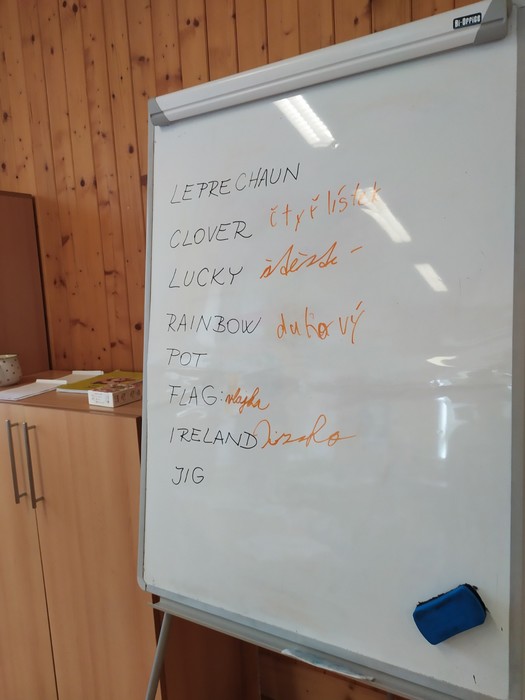 Bi-Office
LEPRECHAUN
CLOVER čtyřlístek
LUCKY
RAINBOW duhový
POT
FLAG: vlajka
IRELAND Irsko
JIG